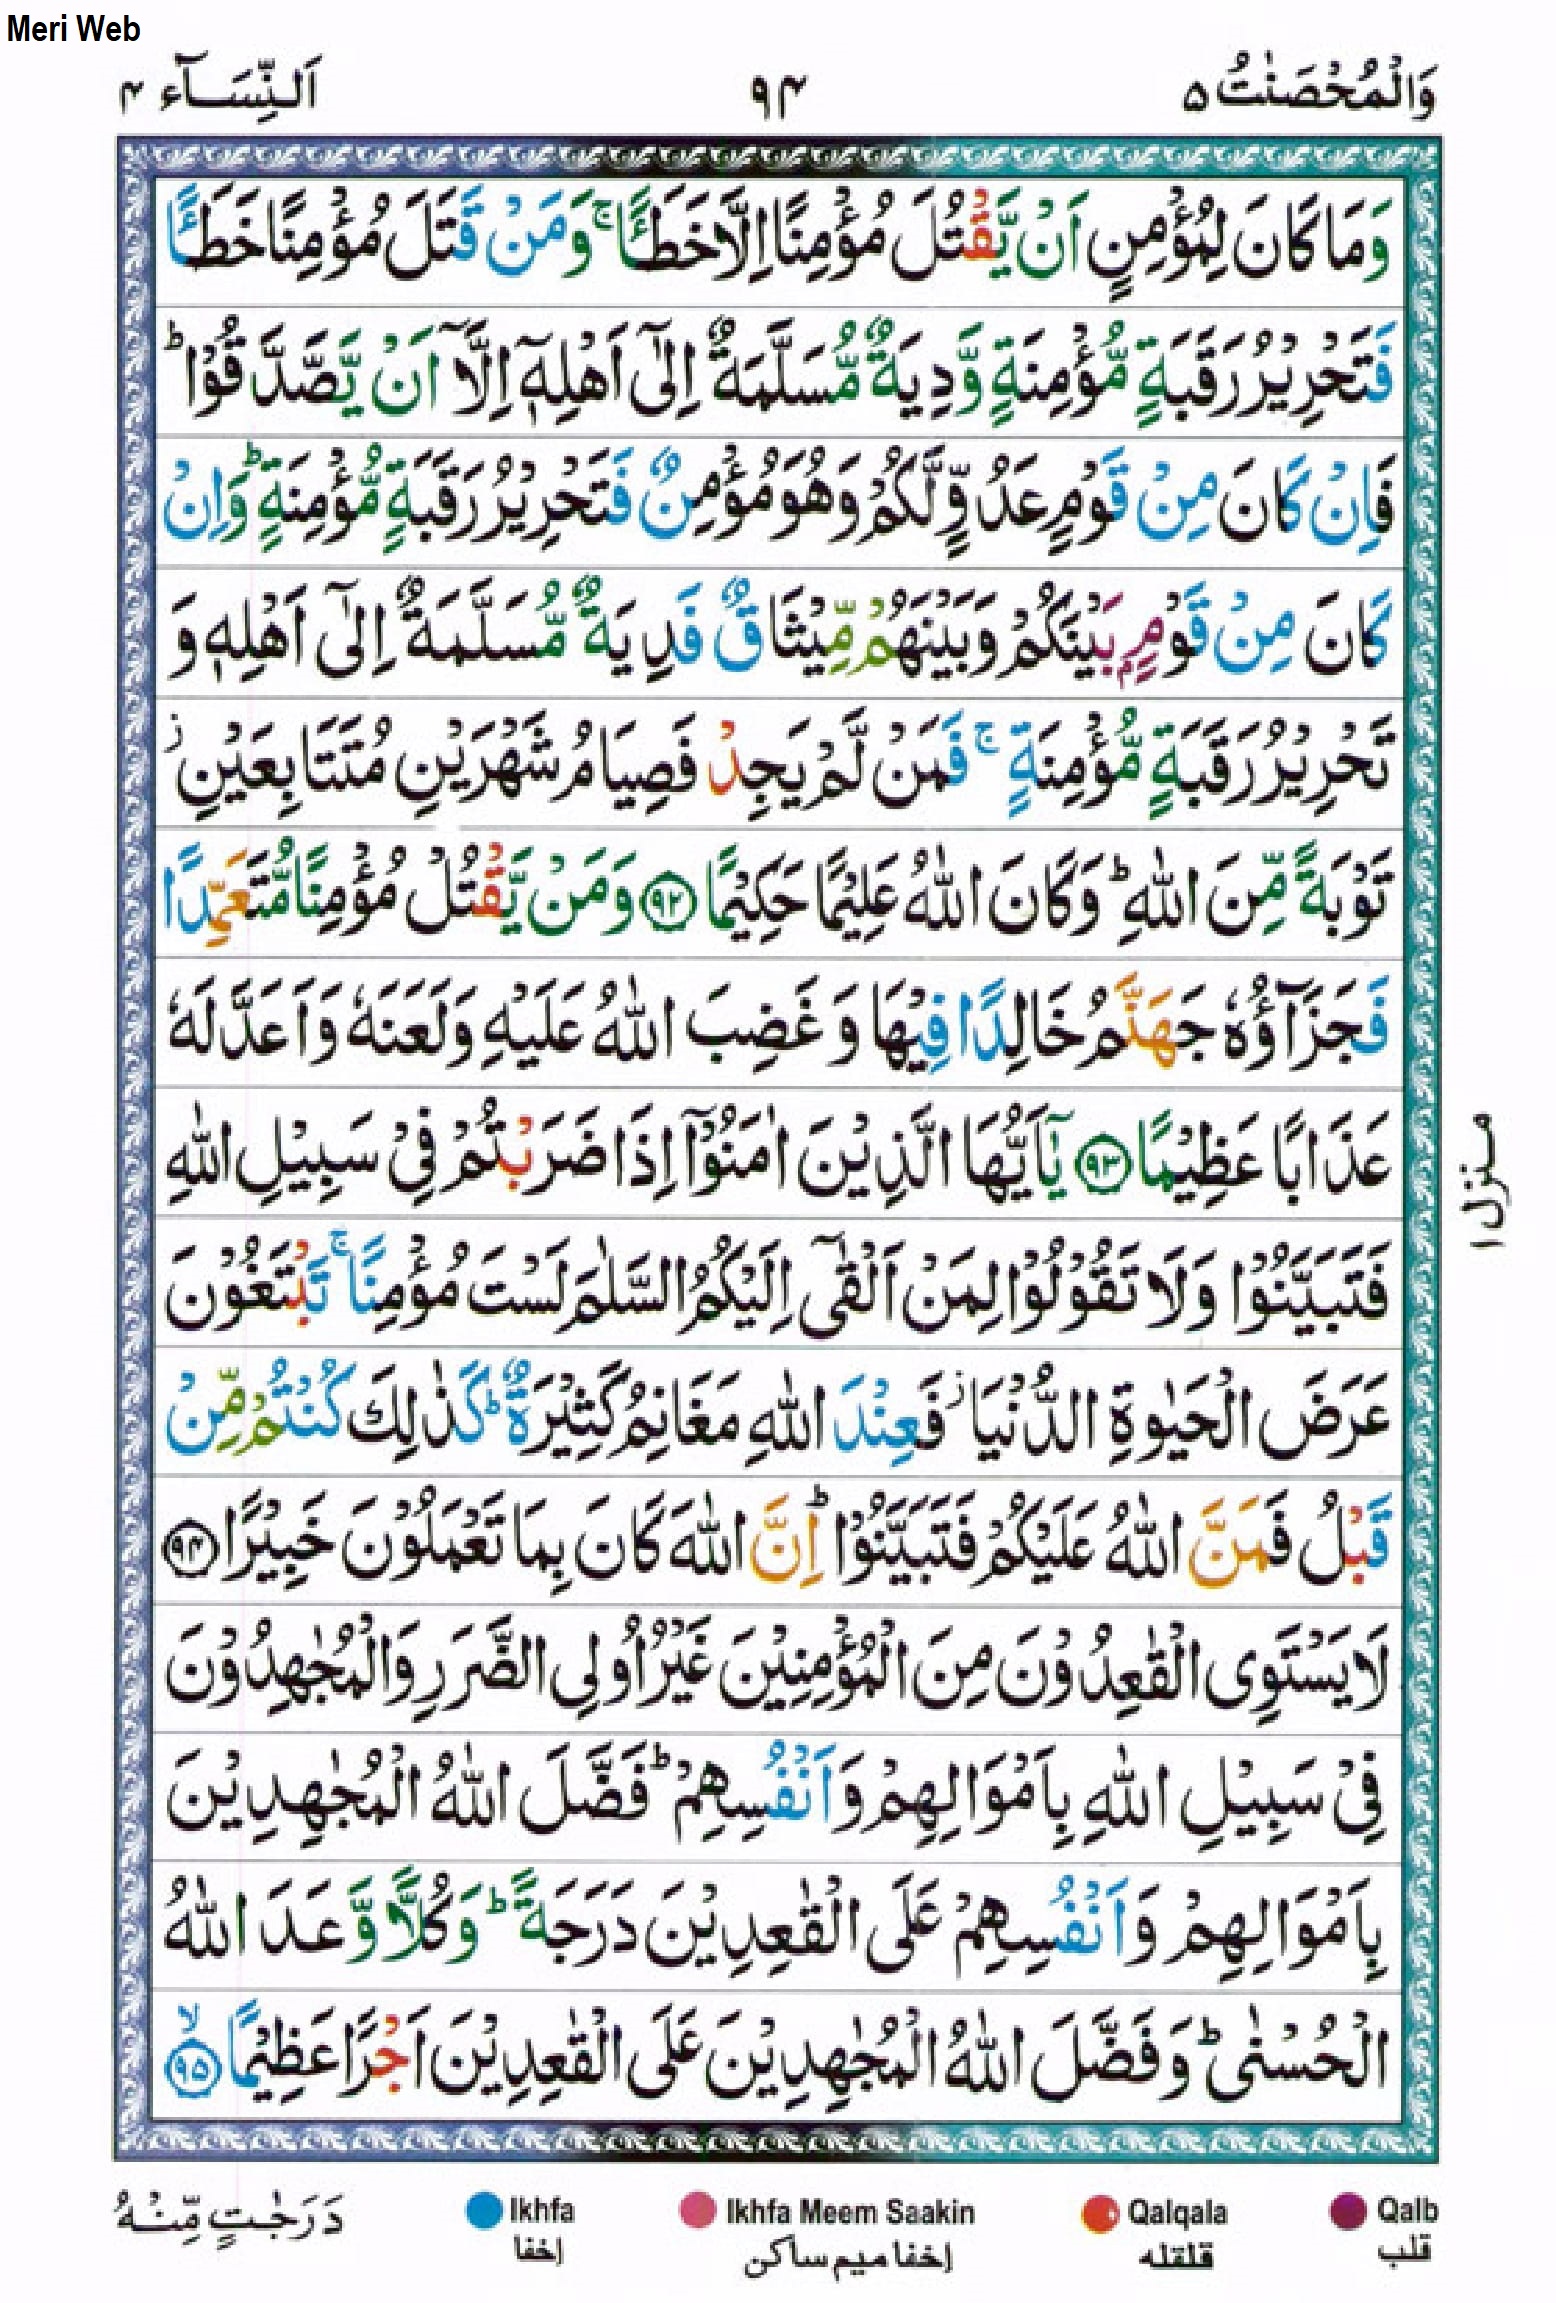 Meri Web
وَالْمُحْصَنٰتُ ۵
۹۴
اَلنِّسَآء ۴
وَمَا كَانَ لِمُؤْمِنٍ اَنْ يَّقْتُلَ مُؤْمِنًا اِلَّا خَطَـًٔا ۚ وَمَنْ قَتَلَ مُؤْمِنًا خَطَـًٔا
فَتَحْرِيْرُ رَقَبَةٍ مُّؤْمِنَةٍ وَّدِيَةٌ مُّسَلَّمَةٌ اِلٰٓى اَهْلِهٖٓ اِلَّآ اَنْ يَّصَّدَّقُوْا ؕ
فَاِنْ كَانَ مِنْ قَوْمٍ عَدُوٍّ لَّكُمْ وَهُوَ مُؤْمِنٌ فَتَحْرِيْرُ رَقَبَةٍ مُّؤْمِنَةٍ ؕ وَاِنْ
كَانَ مِنْ قَوْمٍۭ بَيْنَكُمْ وَبَيْنَهُمْ مِّيْثَاقٌ فَدِيَةٌ مُّسَلَّمَةٌ اِلٰٓى اَهْلِهٖ وَ
تَحْرِيْرُ رَقَبَةٍ مُّؤْمِنَةٍ ۚ فَمَنْ لَّمْ يَجِدْ فَصِيَامُ شَهْرَيْنِ مُتَتَابِعَيْنِ ز
تَوْبَةً مِّنَ اللّٰهِ ؕ وَكَانَ اللّٰهُ عَلِيْمًا حَكِيْمًا ۹۲ وَمَنْ يَّقْتُلْ مُؤْمِنًا مُّتَعَمِّدًا
فَجَزَآؤُهٗ جَهَنَّمُ خَالِدًا فِيْهَا وَ غَضِبَ اللّٰهُ عَلَيْهِ وَلَعَنَهٗ وَاَعَدَّ لَهٗ
عَذَابًا عَظِيْمًا ۹۳ يٰٓاَيُّهَا الَّذِيْنَ اٰمَنُوْٓا اِذَا ضَرَبْتُمْ فِيْ سَبِيْلِ اللّٰهِ
فَتَبَيَّنُوْا وَلَا تَقُوْلُوْا لِمَنْ اَلْقٰٓى اِلَيْكُمُ السَّلٰمَ لَسْتَ مُؤْمِنًا ۚ تَبْتَغُوْنَ
عَرَضَ الْحَيٰوةِ الدُّنْيَا ز فَعِنْدَ اللّٰهِ مَغَانِمُ كَثِيْرَةٌ ؕ كَذٰلِكَ كُنْتُمْ مِّنْ
قَبْلُ فَمَنَّ اللّٰهُ عَلَيْكُمْ فَتَبَيَّنُوْا ؕ اِنَّ اللّٰهَ كَانَ بِمَا تَعْمَلُوْنَ خَبِيْرًا ۹۴
لَا يَسْتَوِى الْقٰعِدُوْنَ مِنَ الْمُؤْمِنِيْنَ غَيْرُ اُولِى الضَّرَرِ وَالْمُجٰهِدُوْنَ
فِيْ سَبِيْلِ اللّٰهِ بِاَمْوَالِهِمْ وَاَنْفُسِهِمْ ؕ فَضَّلَ اللّٰهُ الْمُجٰهِدِيْنَ
بِاَمْوَالِهِمْ وَاَنْفُسِهِمْ عَلَى الْقٰعِدِيْنَ دَرَجَةً ؕ وَكُلًّا وَّعَدَ اللّٰهُ
الْحُسْنٰى ؕ وَفَضَّلَ اللّٰهُ الْمُجٰهِدِيْنَ عَلَى الْقٰعِدِيْنَ اَجْرًا عَظِيْمًا ۙ ۹۵
منزل ۱
دَرَجٰتٍ مِّنْهُ
Ikhfa Ikhfa Meem Saakin Qalqala Qalb
إخفا إخفا میم ساکن قلقله قلب